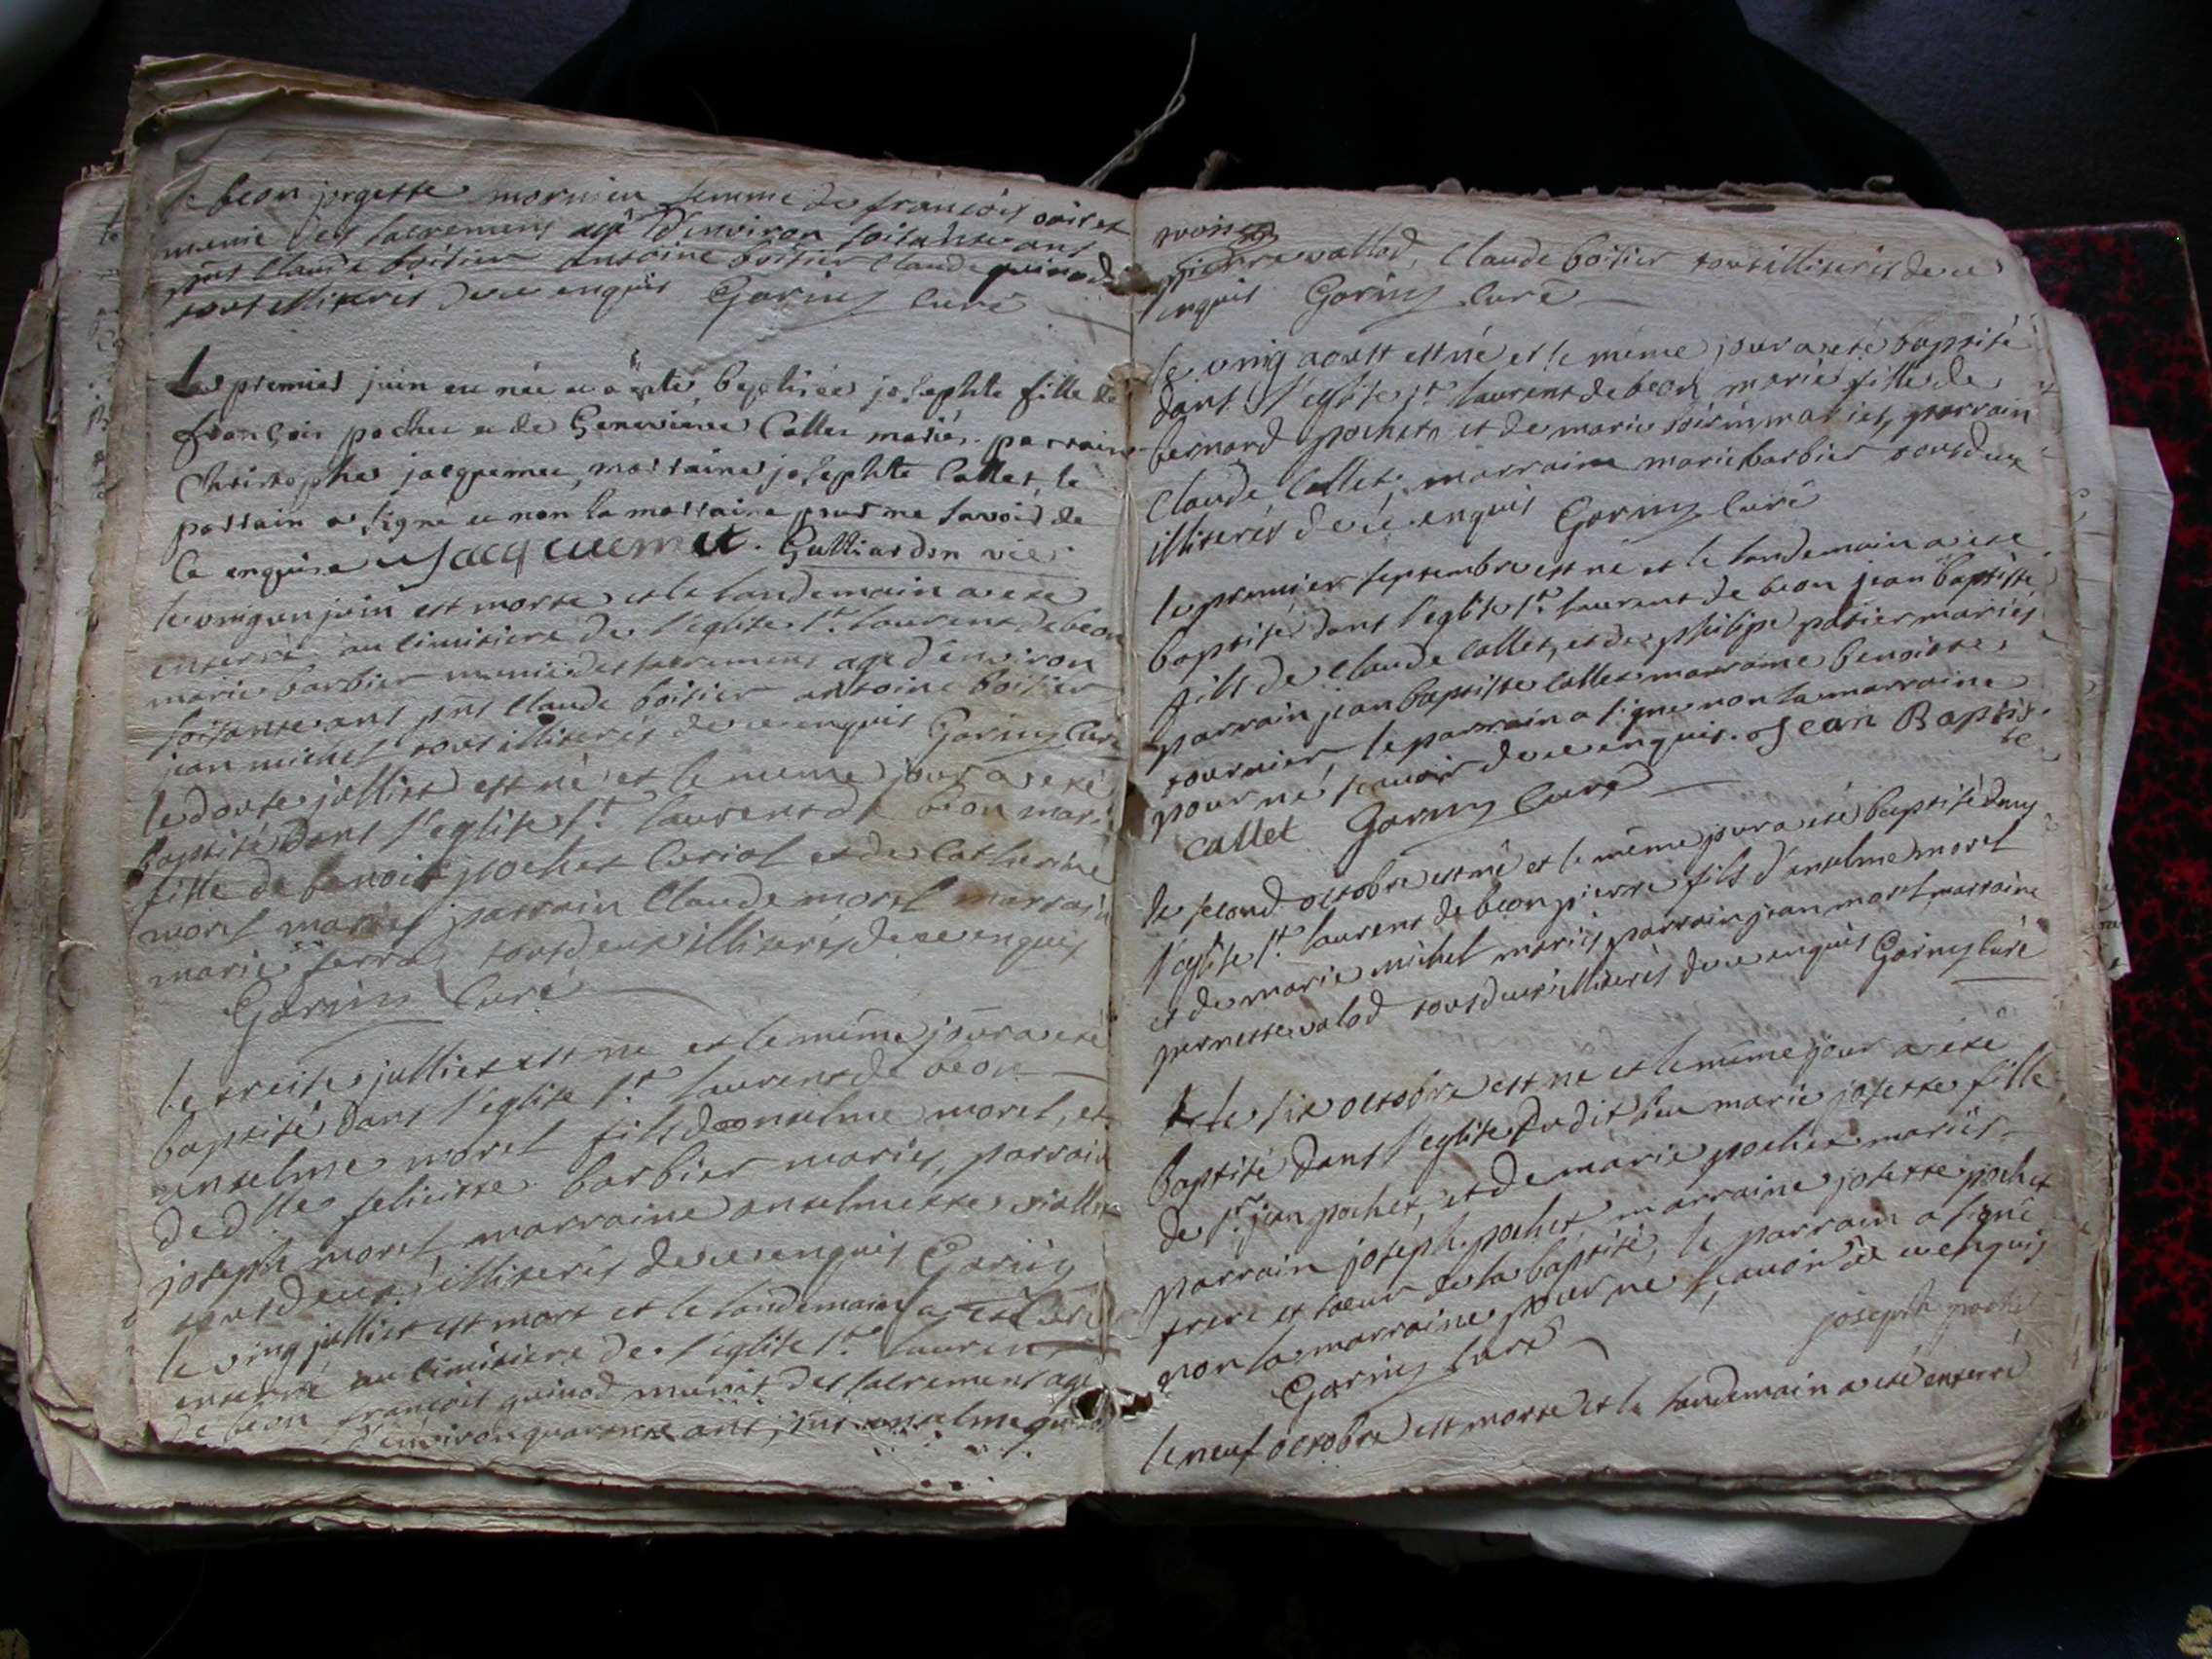 de beon jorgette mornieu femme de françois
munie des sacremens agé d'environ soisante ans
pnt Claude boitier antoine boitier Claude quinod
tous illiterés de ce enquis Goriny Curé
Le premier juin est née et a été baptisée josephte fille de
françois pochet et de Genevieve Callet mariés. parrain
Christophe jacquemet, marraine josephte Callet, le
parrain a signé et non la marraine pour ne savoir de
ce enquise Jacquemet. vic:
le vingun juin est morte et le landemain a eté
enterré au cimitiere de l'eglise st laurent de beon
marie barbier munie des sacremens agé d'environ
soisante ans pnt Claude boitier antoine boitier
jean michel tous illiterés de ce enquis Goriny Curé
le douse julliet est né et le meme jour a eté
baptisé dans l'eglise st laurent de beon marie
fille de benoit pochet Curiol et de Catherine
morel mariés parrain Claude morel marraine
marie serra tous deux illiterés de ce enquis
Goriny Curé
le treise julliet est né et le même jour a eté
baptisé dans l'eglise st laurent de beon
anselme morel fils de anselme morel, et
de dlle felicitte barbier mariés, parrain
joseph morel, marraine anselmette viallet
tous deux illiterés de ce enquis Goriny
le ving julliet est mort et le landemain a eté Curé
enterré au cimitiere de l'eglise st laurent
de beon françois quinod munit des sacremens agé
d'environ quarente ans, pnt anselme
pierre vallod, Claude boitier tous illiterés de ce
enquis Goriny Curé
le ving aoust est né et le même jour a eté baptisé
dans l'eglise st laurent de beon marie fille de
bernard pochet et de marie mariés, parrain
Claude Callet, marraine marie barbier tous deux
illiterés de ce enquis Goriny Curé
le premier septembre est né et le landemain a eté
baptisé dans l'eglise st laurent de beon jean baptiste
fils de Claude Callet, et de philipe patier mariés
parrain jean baptiste callet marraine benoitte
tournier, le parrain a signé non la marraine
pour ne sçavoir de ce enquis. Jean Baptis
te
callet Goriny Curé
le second octobre est né et le même jour a eté baptisé dans
l'eglise st laurent de beon pierre fils d'anselme morel
et de marie michel mariés, parrain jean morel marraine
pernette valod tous deux illiterés de ce enquis Goriny Curé
le six octobre est né et le même jour a eté
baptisé dans l'eglise dudit lieu marie josette fille
de sr jean pochet, et de marie pochet mariés
parrain joseph pochet, marraine josette pochet
frere et soeur de la baptisé, le parrain a signé
non la marraine pour ne sçavoir de ce enquis
joseph pochet
Goriny Curé
le neuf octobre est morte et le landemain a eté enterré